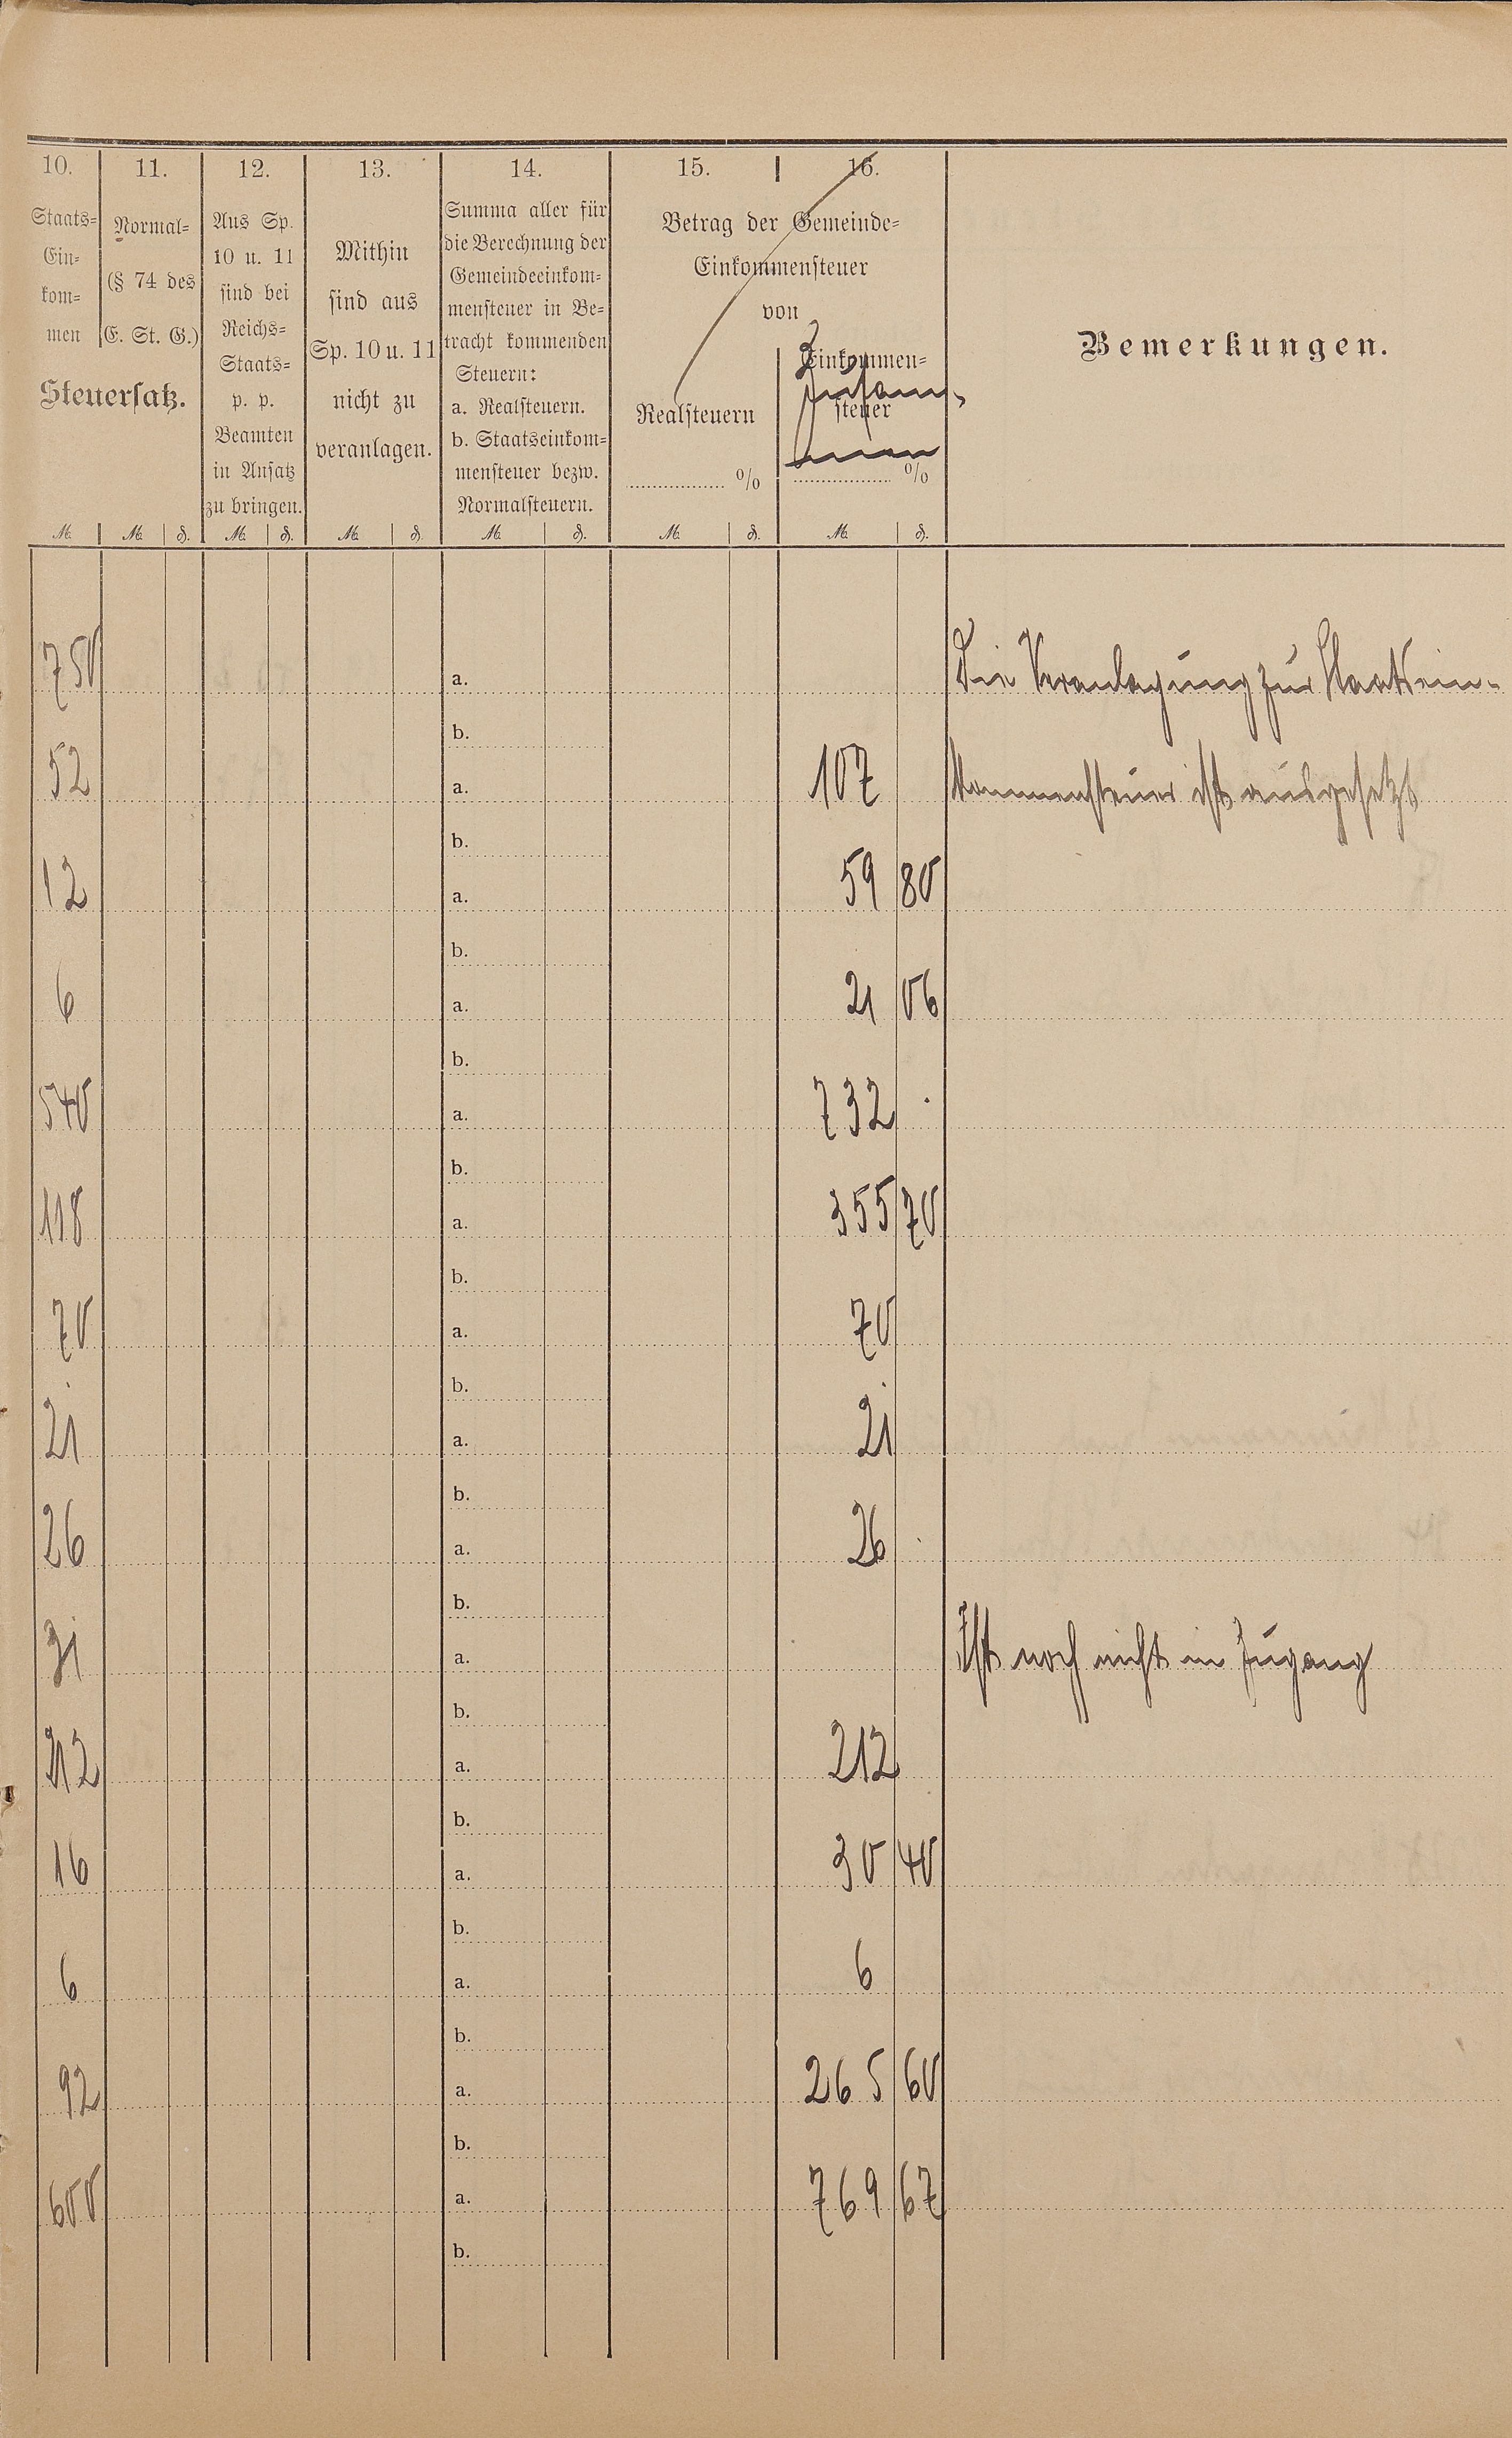 10. 11. 12. 13. 14. 15. 16.
Staats-
Ein-
kom-
men
Normal-
(§ 74 des
E. St. G.)
Steuersatz.
Aus Sp.
10 u. 11
sind bei
Reichs-
Staats-
p. p.
Beamten
in Ansatz
zu bringen.
Mithin
sind aus
Sp. 10 u. 11
nicht zu
veranlagen.
Summa aller für
die Berechnung der
Gemeindeeinkom-
mensteuer in Be-
tracht kommenden
Steuern:
a. Realsteuern.
b. Staatseinkom-
mensteuer bezw.
Normalsteuern.
Betrag der Gemeinde-
Einkommensteuer
von
Realsteuern
%
Einkommen-
steuer
%
Zusam-
men
Bemerkungen.
M. M. ₰. M. ₰. M. ₰. M. ₰. M. ₰. M. ₰.
750 a. Die Veranlagung zur Staatsein-
b.
52 a. 107 kommensteuer ist ausgesetzt
b.
12 a. 59 80
b.
6 a. 21 06
b.
540 a. 732 .
b.
118 a. 355 70
b.
70 a. 70
b.
21 a. 21
b.
26 a. 26 .
b.
31 a. Ist noch nicht in Zugang
b.
212 a. 212
b.
16 a. 30 40
b.
6 a. 6
b.
92 a. 265 60
b.
600 a. 769 67
b.